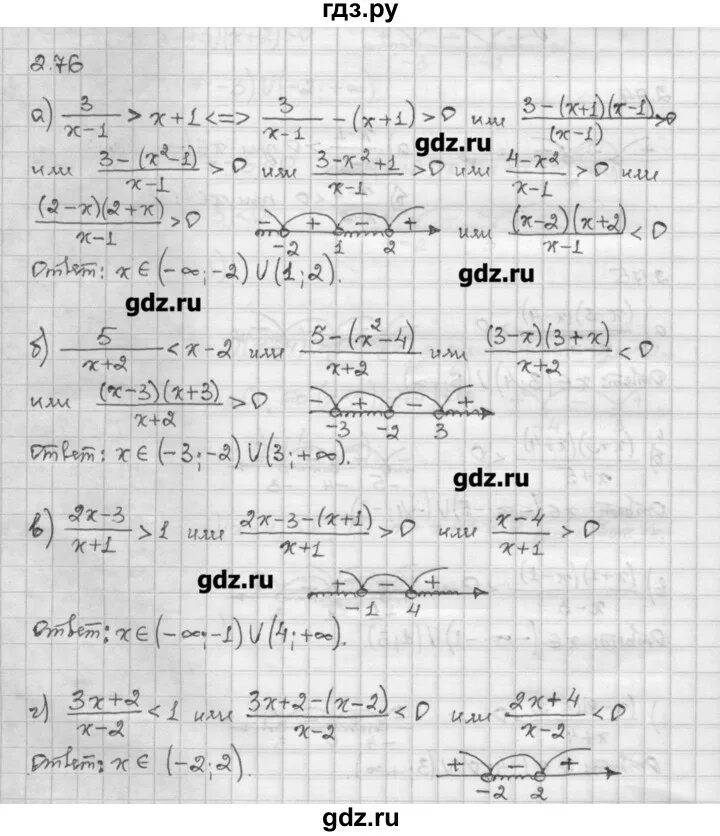 гдз.ру
2.76
а) 3/(x-1) > x+1 <=> 3/(x-1) - (x+1) > 0 или (3-(x+1)(x-1))/(x-1) > 0
gdz.ru
или (3-(x²-1))/(x-1) > 0 или (3-x²+1)/(x-1) > 0 или (4-x²)/(x-1) > 0 или
(2-x)(2+x)/(x-1) > 0 - + - + -2 1 2 или (x-2)(x+2)/(x-1) < 0
Ответ: x∈(-∞;-2)∪(1;2).
gdz.ru
gdz.ru
б) 5/(x+2) < x-2 или (5-(x²-4))/(x+2) или (3-x)(3+x)/(x+2) < 0
или (x-3)(x+3)/(x+2) > 0 - + - + -3 -2 3
Ответ: x∈(-3;-2)∪(3;+∞).
gdz.ru
в) (2x-3)/(x+1) > 1 или (2x-3-(x+1))/(x+1) > 0 или (x-4)/(x+1) > 0
gdz.ru
+ - + -1 4
Ответ: x∈(-∞;-1)∪(4;+∞).
г) (3x+2)/(x-2) < 1 или (3x+2-(x-2))/(x-2) < 0 или (2x+4)/(x-2) < 0
Ответ: x∈(-2;2). + - + -2 2
gdz.ru